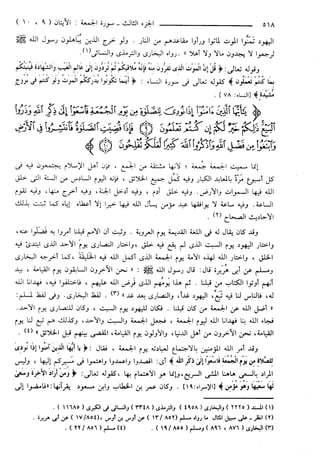 ٥١٨ الجزء الثالث - سورة الجمعة : الآيتان ( ٩ ، ١٠ )
اليهود تمنوا الموت لماتوا ورأوا مقاعدهم من النار . ولو خرج الذين يباهلون رسول الله ﷺ
لرجعوا لا يجدون مالا ولا أهلا » . رواه البخاري والترمذي والنسائي (١) .
وقوله تعالى : ﴿ قُلْ إِنَّ الْمَوْتَ الَّذِي تَفِرُّونَ مِنْهُ فَإِنَّهُ مُلَاقِيكُمْ ثُمَّ تُرَدُّونَ إِلَى عَالِمِ الْغَيْبِ وَالشَّهَادَةِ فَيُنَبِّئُكُم
بِمَا كُنتُمْ تَعْمَلُونَ ﴾ كقوله تعالى في سورة النساء : ﴿ أَيْنَمَا تَكُونُوا يُدْرِككُّمُ الْمَوْتُ وَلَوْ كُنتُمْ فِي بُرُوجٍ
مُّشَيَّدَةٍ ﴾ [ النساء : ٧٨ ] .
يَا أَيُّهَا الَّذِينَ آمَنُوا إِذَا نُودِيَ لِلصَّلَاةِ مِن يَوْمِ الْجُمُعَةِ فَاسْعَوْا إِلَى ذِكْرِ اللَّهِ وَذَرُوا
الْبَيْعَ ذَلِكُمْ خَيْرٌ لَّكُمْ إِن كُنتُمْ تَعْلَمُونَ ۝ فَإِذَا قُضِيَتِ الصَّلَاةُ فَانتَشِرُوا فِي الْأَرْضِ
وَابْتَغُوا مِن فَضْلِ اللَّهِ وَاذْكُرُوا اللَّهَ كَثِيرًا لَّعَلَّكُمْ تُفْلِحُونَ ۝
إنما سميت الجمعة جُمعة ؛ لأنها مشتقة من الجمع ، فإن أهل الإسلام يجتمعون فيه في
كل أسبوع مرةً بالمعابد الكبار وفيه كمُل جميع الخلائق ، فإنه اليوم السادس من الستة التي خلق
الله فيها السموات والأرض . وفيه خلق آدم ، وفيه أدخل الجنة ، وفيه أخرج منها ، وفيه تقوم
الساعة . وفيه ساعة لا يوافقها عبد مؤمن يسأل الله فيها خيرا إلا أعطاه إياه كما ثبتت بذلك
الأحاديث الصحاح (٢) .
وقد كان يقال له في اللغة القديمة يوم العروبة . وثبت أن الأمم قبلنا أمروا به فضلوا عنه ،
واختار اليهود يوم السبت الذي لم يقع فيه خلق ، واختار النصارى يوم الأحد الذي ابتدئ فيه
الخلق ، واختار الله لهذه الأمة يوم الجمعة الذي أكمل الله فيه الخليقة ، كما أخرجه البخاري
ومسلم عن أبي هريرة قال : قال رسول الله ﷺ : « نحن الآخرون السابقون يوم القيامة ، بيد
أنهم أوتوا الكتاب من قبلنا . ثم هذا يومهم الذي فرض الله عليهم ، فاختلفوا فيه ، فهدانا الله
له ، فالناس لنا فيه تبع اليهود غداً ، والنصارى بعد غد » (٣) . لفظ البخاري . وفي لفظ لمسلم :
« أضل الله عن الجمعة من كان قبلنا . فكان لليهود يوم السبت ، وكان للنصارى يوم الأحد .
فجاء الله بنا فهدانا الله ليوم الجمعة ، فجعل الجمعة والسبت والأحد ، وكذلك هم تبع لنا يوم
القيامة ، نحن الآخرون من أهل الدنيا ، والأولون يوم القيامة ، المقضي بينهم قبل الخلائق » (٤) .
وقد أمر الله المؤمنين بالاجتماع لعبادته يوم الجمعة ، فقال : ﴿ يَا أَيُّهَا الَّذِينَ آمَنُوا إِذَا نُودِيَ
لِلصَّلَاةِ مِن يَوْمِ الْجُمُعَةِ فَاسْعَوْا إِلَى ذِكْرِ اللَّهِ ﴾ أي : اقصدوا واعمدوا واهتموا في مسيركم إليها ، وليس
المراد بالسعي هاهنا المشي السريع ، وإنما هو الاهتمام بها ، كقوله تعالى : ﴿ وَمَنْ أَرَادَ الْآخِرَةَ وَسَعَى
لَهَا سَعْيَهَا وَهُوَ مُؤْمِنٌ ﴾ [ الإسراء : ١٩ ] . وكان عمر بن الخطاب وابن مسعود يقرآنها : « فامضوا إلى
(١) المسند ( ٢٢٢٥ ) والبخاري ( ٤٩٥٨ ) والترمذي ( ٣٣٤٨ ) والنسائي في الكبرى ( ١١٦٨٥ ) .
(٢) انظر - على سبيل المثال ما رواه مسلم ( ٨٥٢ / ١٣ ) عن أوس بن أوس ، ( ٨٥٤ / ١٧ ) عن أبي هريرة .
(٣) البخاري ( ٨٧٦ ، ٨٩٦ ) ومسلم ( ٨٥٥ / ١٩ ) . (٤) مسلم ( ٨٥٦ / ٢٢ ) .